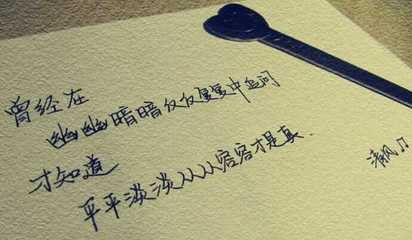 曾经在
幽幽暗暗反反复复中追问
才知道
平平淡淡从从容容才是真.
清风♫